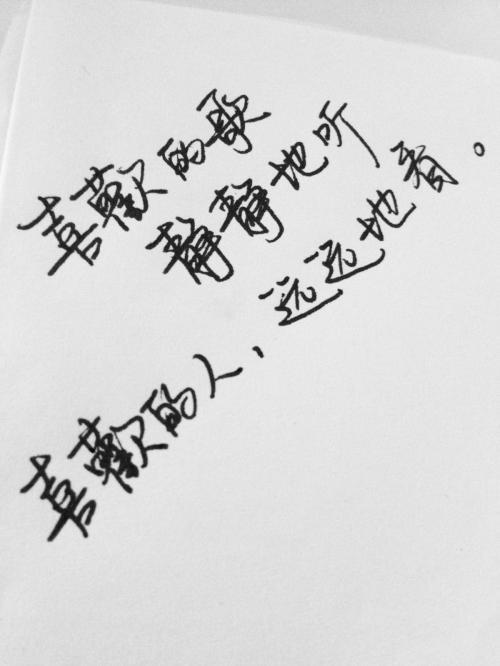 喜歡的歌
靜靜地听
喜歡的人、远远地看。